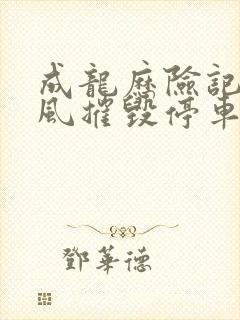 成龍歷險記
風摧毀停車
鄧華德